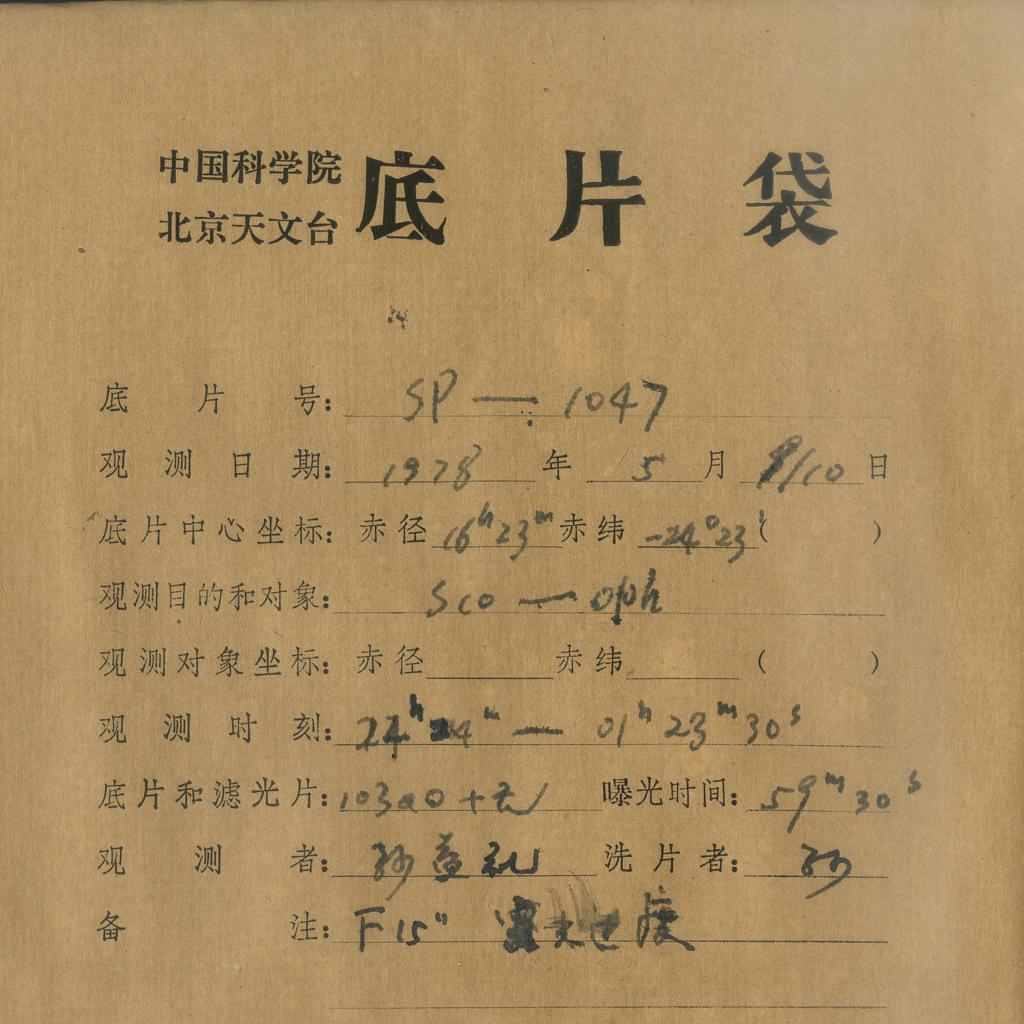 中国科学院
北京天文台
底片袋
底片号: SP — 1047
观测日期: 1978 年 5 月 9/10 日
底片中心坐标: 赤径 16h23m 赤纬 -24°23′( )
观测目的和对象: Sco —
观测对象坐标: 赤径 赤纬 ( )
观测时刻: 24h24m — 01h23m30s
底片和滤光片: 103aO + 无 曝光时间: 59m30s
观测者: 孙益礼 洗片者: 孙
备注: F15"